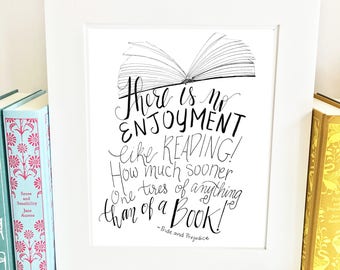 There is no
ENJOYMENT
like READING!
How much sooner
One tires of anything
than of a BOOK!
~ Pride and Prejudice
Sense
and
Sensibility
Jane
Austen